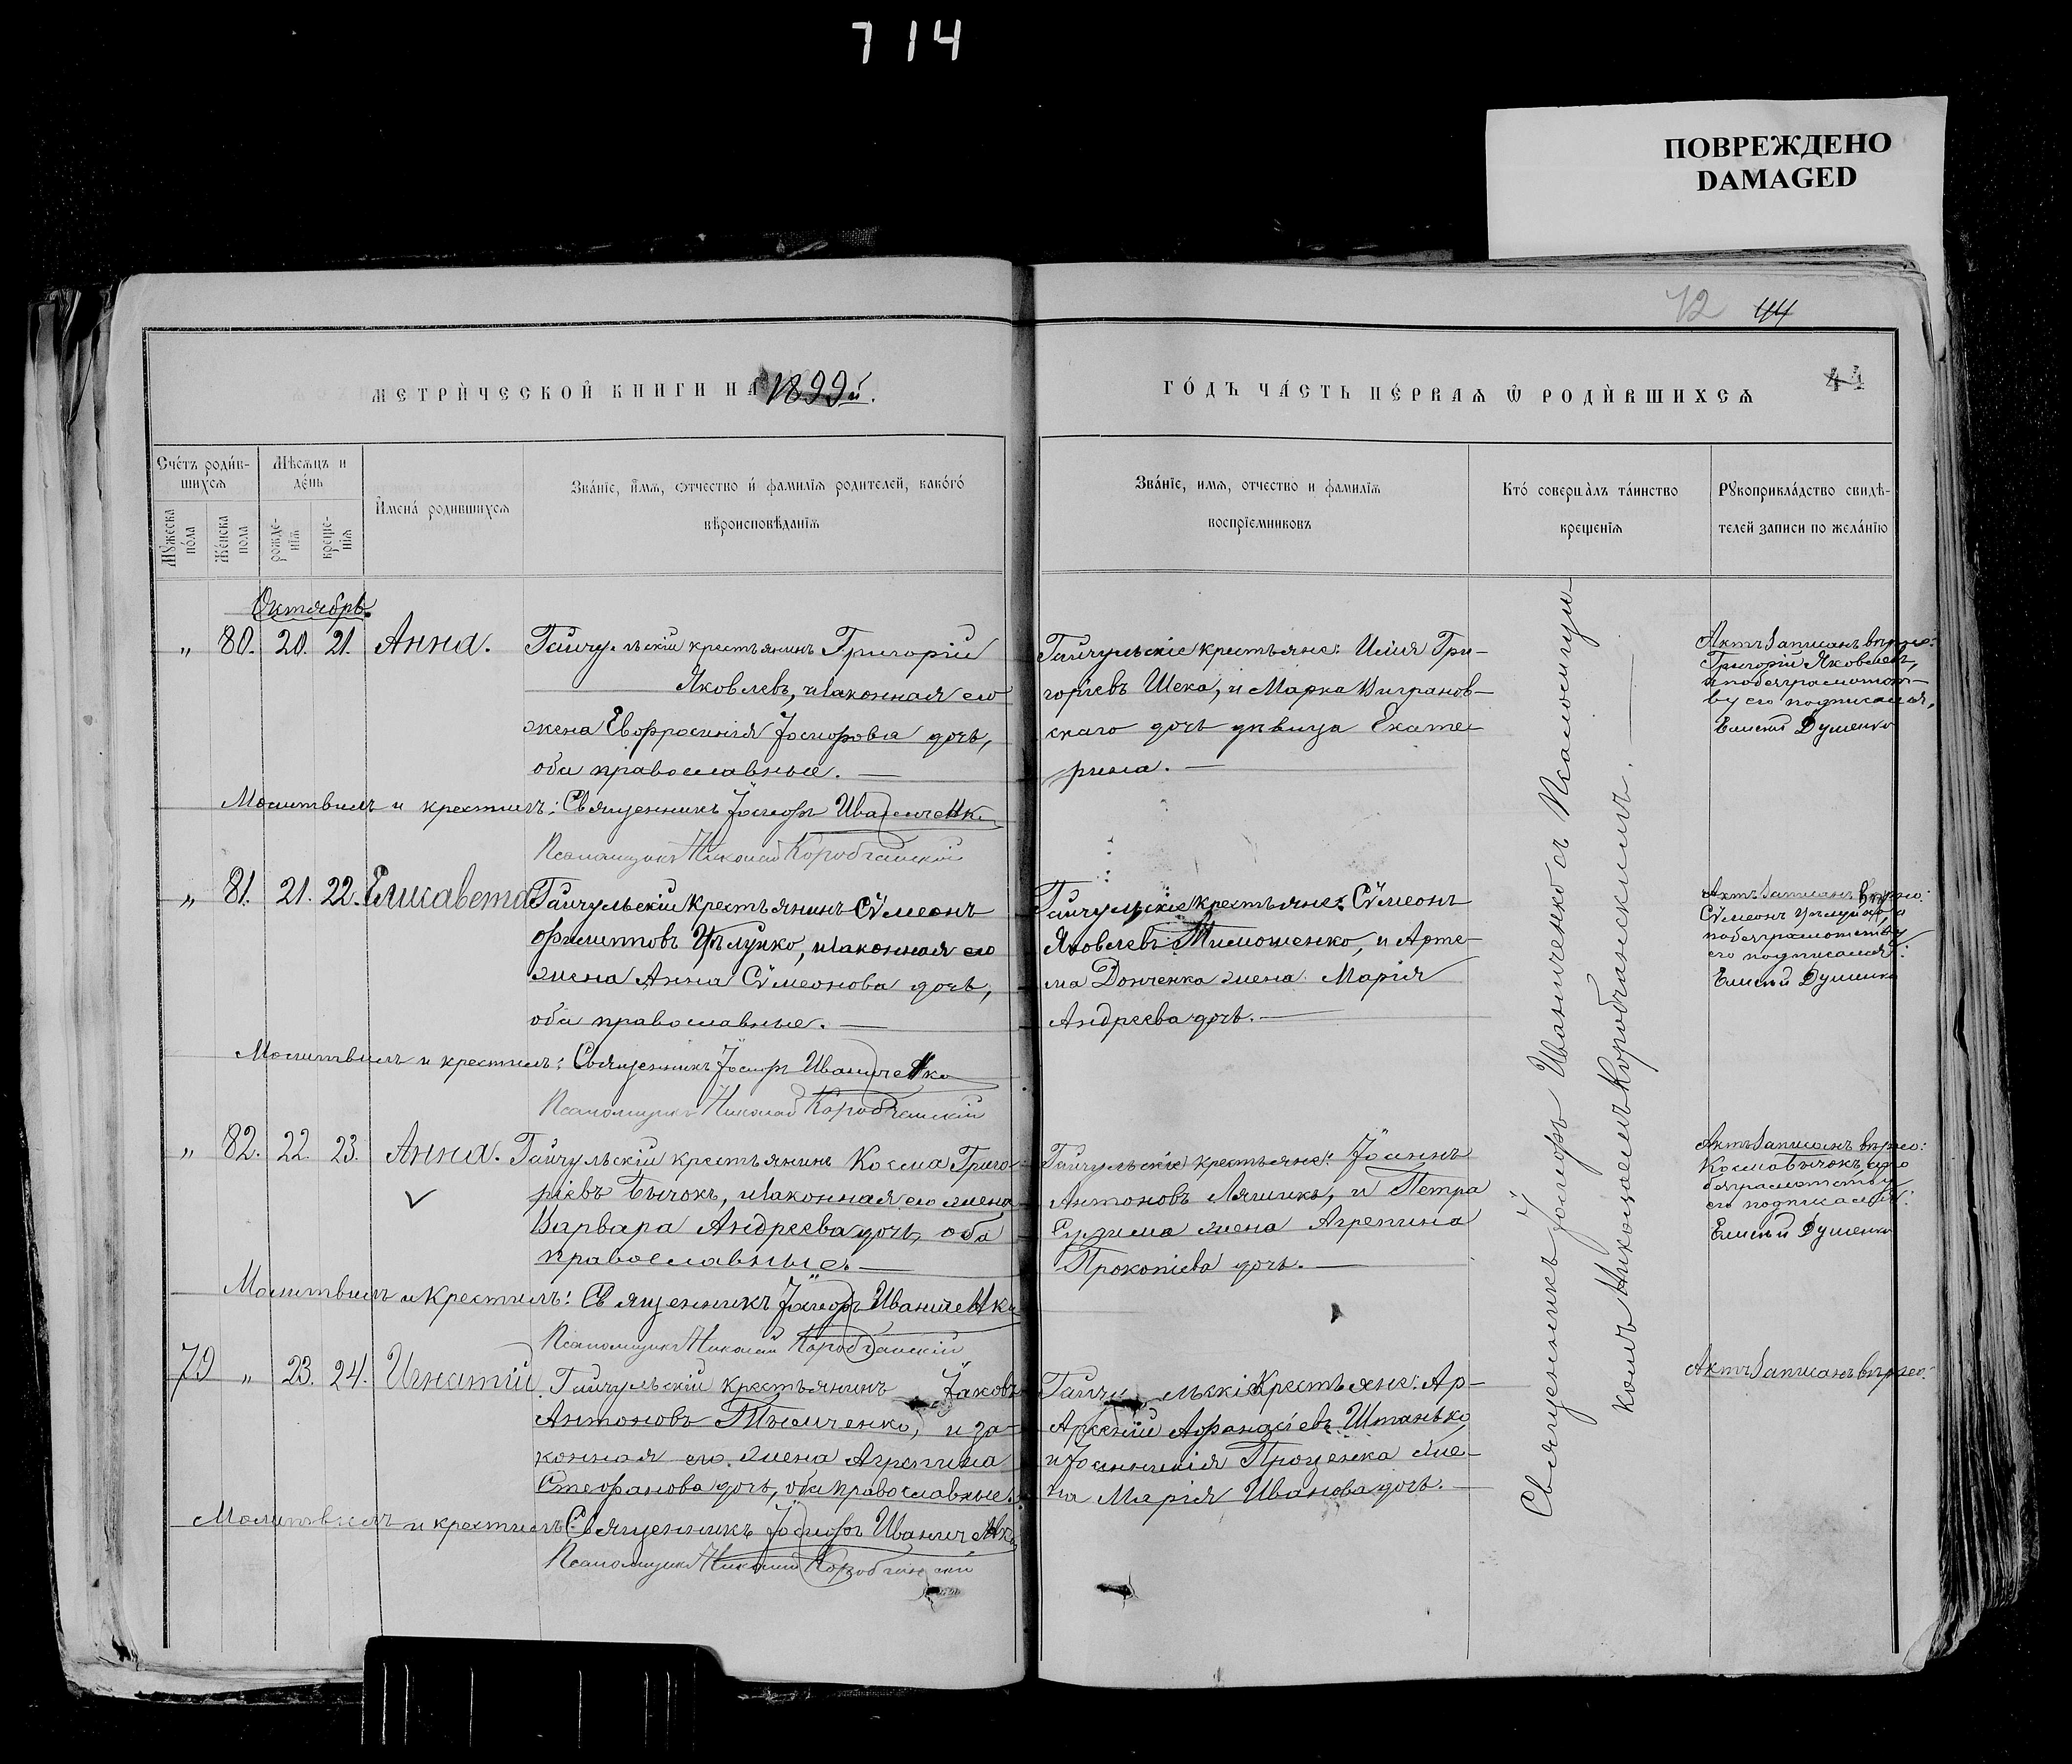 714
ПОВРЕЖДЕНО
DAMAGED
42 44
МЕТРИ́ЧЕСКОЙ КНИГИ НА 1899й.
ГО́ДЪ ЧА́СТЬ ПЕ́РВАѦ Ѡ҆ РОДИ́ВШИХСѦ
44
Сче́тъ роди́в-
шихсѧ
Мѣсѧцъ и
де́нь
Мꙋ́жеска
по́ла
Же́нска
пола
рожде-
нїѧ
креще-
нїѧ
И҆мена́ родившихсѧ
Зва́нїе, и҆́мѧ, ѻтчество и҆ фамилїѧ родителей, како́гѻ́
вѣ́роисповѣ́данїѧ
Зва́нїе, имѧ, отчество и фамилїѧ
воспрїемниковъ
Кто́ соверша̀лъ та́инство
крещенїѧ
Рꙋкоприкла́дство свидѣ-
телей записи по жела́нїю
Октябрь
„ 80. 20. 21. Анна.
Гайчульскій крестьянинъ Григорій
Яковлевъ, и законная его
жена Евфросинія Іосифова дочь,
оба православные. —
Молитвилъ и крестилъ: Священникъ Іосифъ Иваниченко
Псаломщикъ Николай Коробчанскій
Гайчульскіе крестьяне: Илія Гри-
горіевъ Шека, и Марка Вигранов-
скаго дочь дѣвица Екате-
рина. —
Актъ записанъ вѣрно:
Григорій Яковлевъ,
а по безграмотст-
ву его подписался,
Елисей Душенко
„ 81. 21. 22. Елисавета
Гайчульскій крестьянинъ Сѷмеонъ
Филипповъ Цѣлуйко, и законная его
жена Анна Сѷмеонова дочь,
оба православные. —
Молитвилъ и крестилъ: Священникъ Іосифъ Иваниченко
Псаломщикъ Николай Коробчанскій
Гайчульскіе крестьяне: Сѷмеонъ
Яковлевъ Тимошенко, и Арте-
ма Донченка жена Марія
Андреева дочь. —
Актъ записанъ вѣрно:
Сѷмеонъ Цѣлуйко а
по безграмотству
его подписался:
Елисей Душенко
„ 82. 22. 23. Анна.
Гайчульскій крестьянинъ Косма Григо-
ріевъ Бычокъ, и законная его жена
Варвара Андреева дочь, оба
православные. —
Молитвилъ и крестилъ: Священникъ Іосифъ Иваниченко
Псаломщикъ Николай Коробчанскій
Гайчульскіе крестьяне: Іоаннъ
Антоновъ Ляшикъ, и Петра
жена Агрепина
Прокопіева дочь. —
Актъ записанъ вѣрно:
Косма Бычокъ, а по
безграмотству
его подписался:
Елисей Душенко
79 „ 23. 24. Игнатій
Гайчульскій крестьянинъ Іаковъ
Антоновъ Тымченко, и за-
конная его жена Агрепина
Стефанова дочь, оба православные.
Молитвилъ и крестилъ: Священникъ Іосифъ Иваниченко
Псаломщикъ Николай Коробчанскій
Гайчульскіе крестьяне: Ар-
Арсеній Афанасіевъ Штанько,
и Іоанникія Проценка же-
на Марія Иванова дочь. —
Актъ записанъ вѣрно:
Священникъ Іосифъ Иваниченко съ Псаломщи-
комъ Николаемъ Коробчанскимъ. —